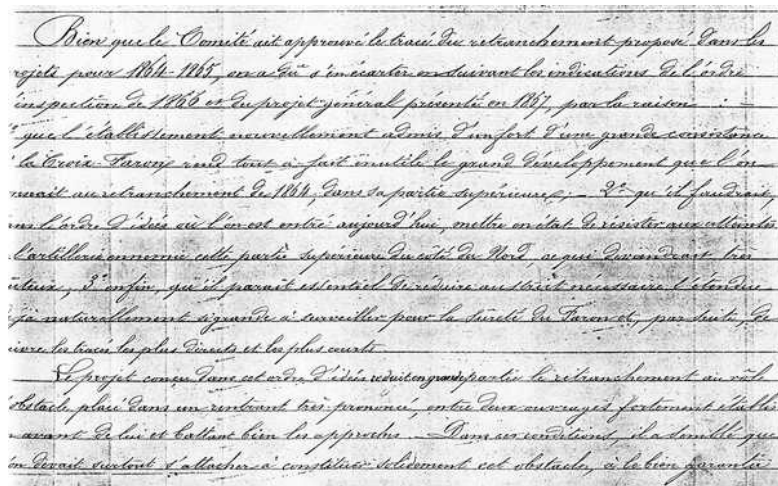 Bien que le Comité ait approuvé le tracé du retranchement proposé dans les
rojets pour 1864-1865, on a dû s'en écarter en suivant les indications de l'ordre
inspection de 1866 et du projet général présenté en 1867, par la raison : =
que l'établissement nouvellement admis d'un fort d'une grande consistance
la Croix-Faron, rend tout à fait inutile le grand développement que l'on
nnait au retranchement de 1864, dans sa partie supérieure; - 2° qu'il faudrait,
ans l'ordre d'idées où l'on est entré aujourd'hui, mettre en état de résister aux atteintes
l'artillerie ennemie cette partie supérieure du côté du Nord, ce qui deviendrait très
ûteux; 3° enfin, qu'il parait essentiel de réduire au strict nécessaire l'étendue
jà naturellement si grande à surveiller pour la sûreté du Faron et, par suite, de
uivre les tracés les plus directs et les plus courts.
Le projet conçu dans cet ordre d'idées réduit en grande partie le retranchement au rôle
obstacle placé dans un rentrant très prononcé, entre deux ouvrages fortement établis
n avant de lui et battant bien les approches. - Dans ces conditions, il a semblé que
on devait surtout s'attacher à constituer solidement cet obstacle, à le bien garantir